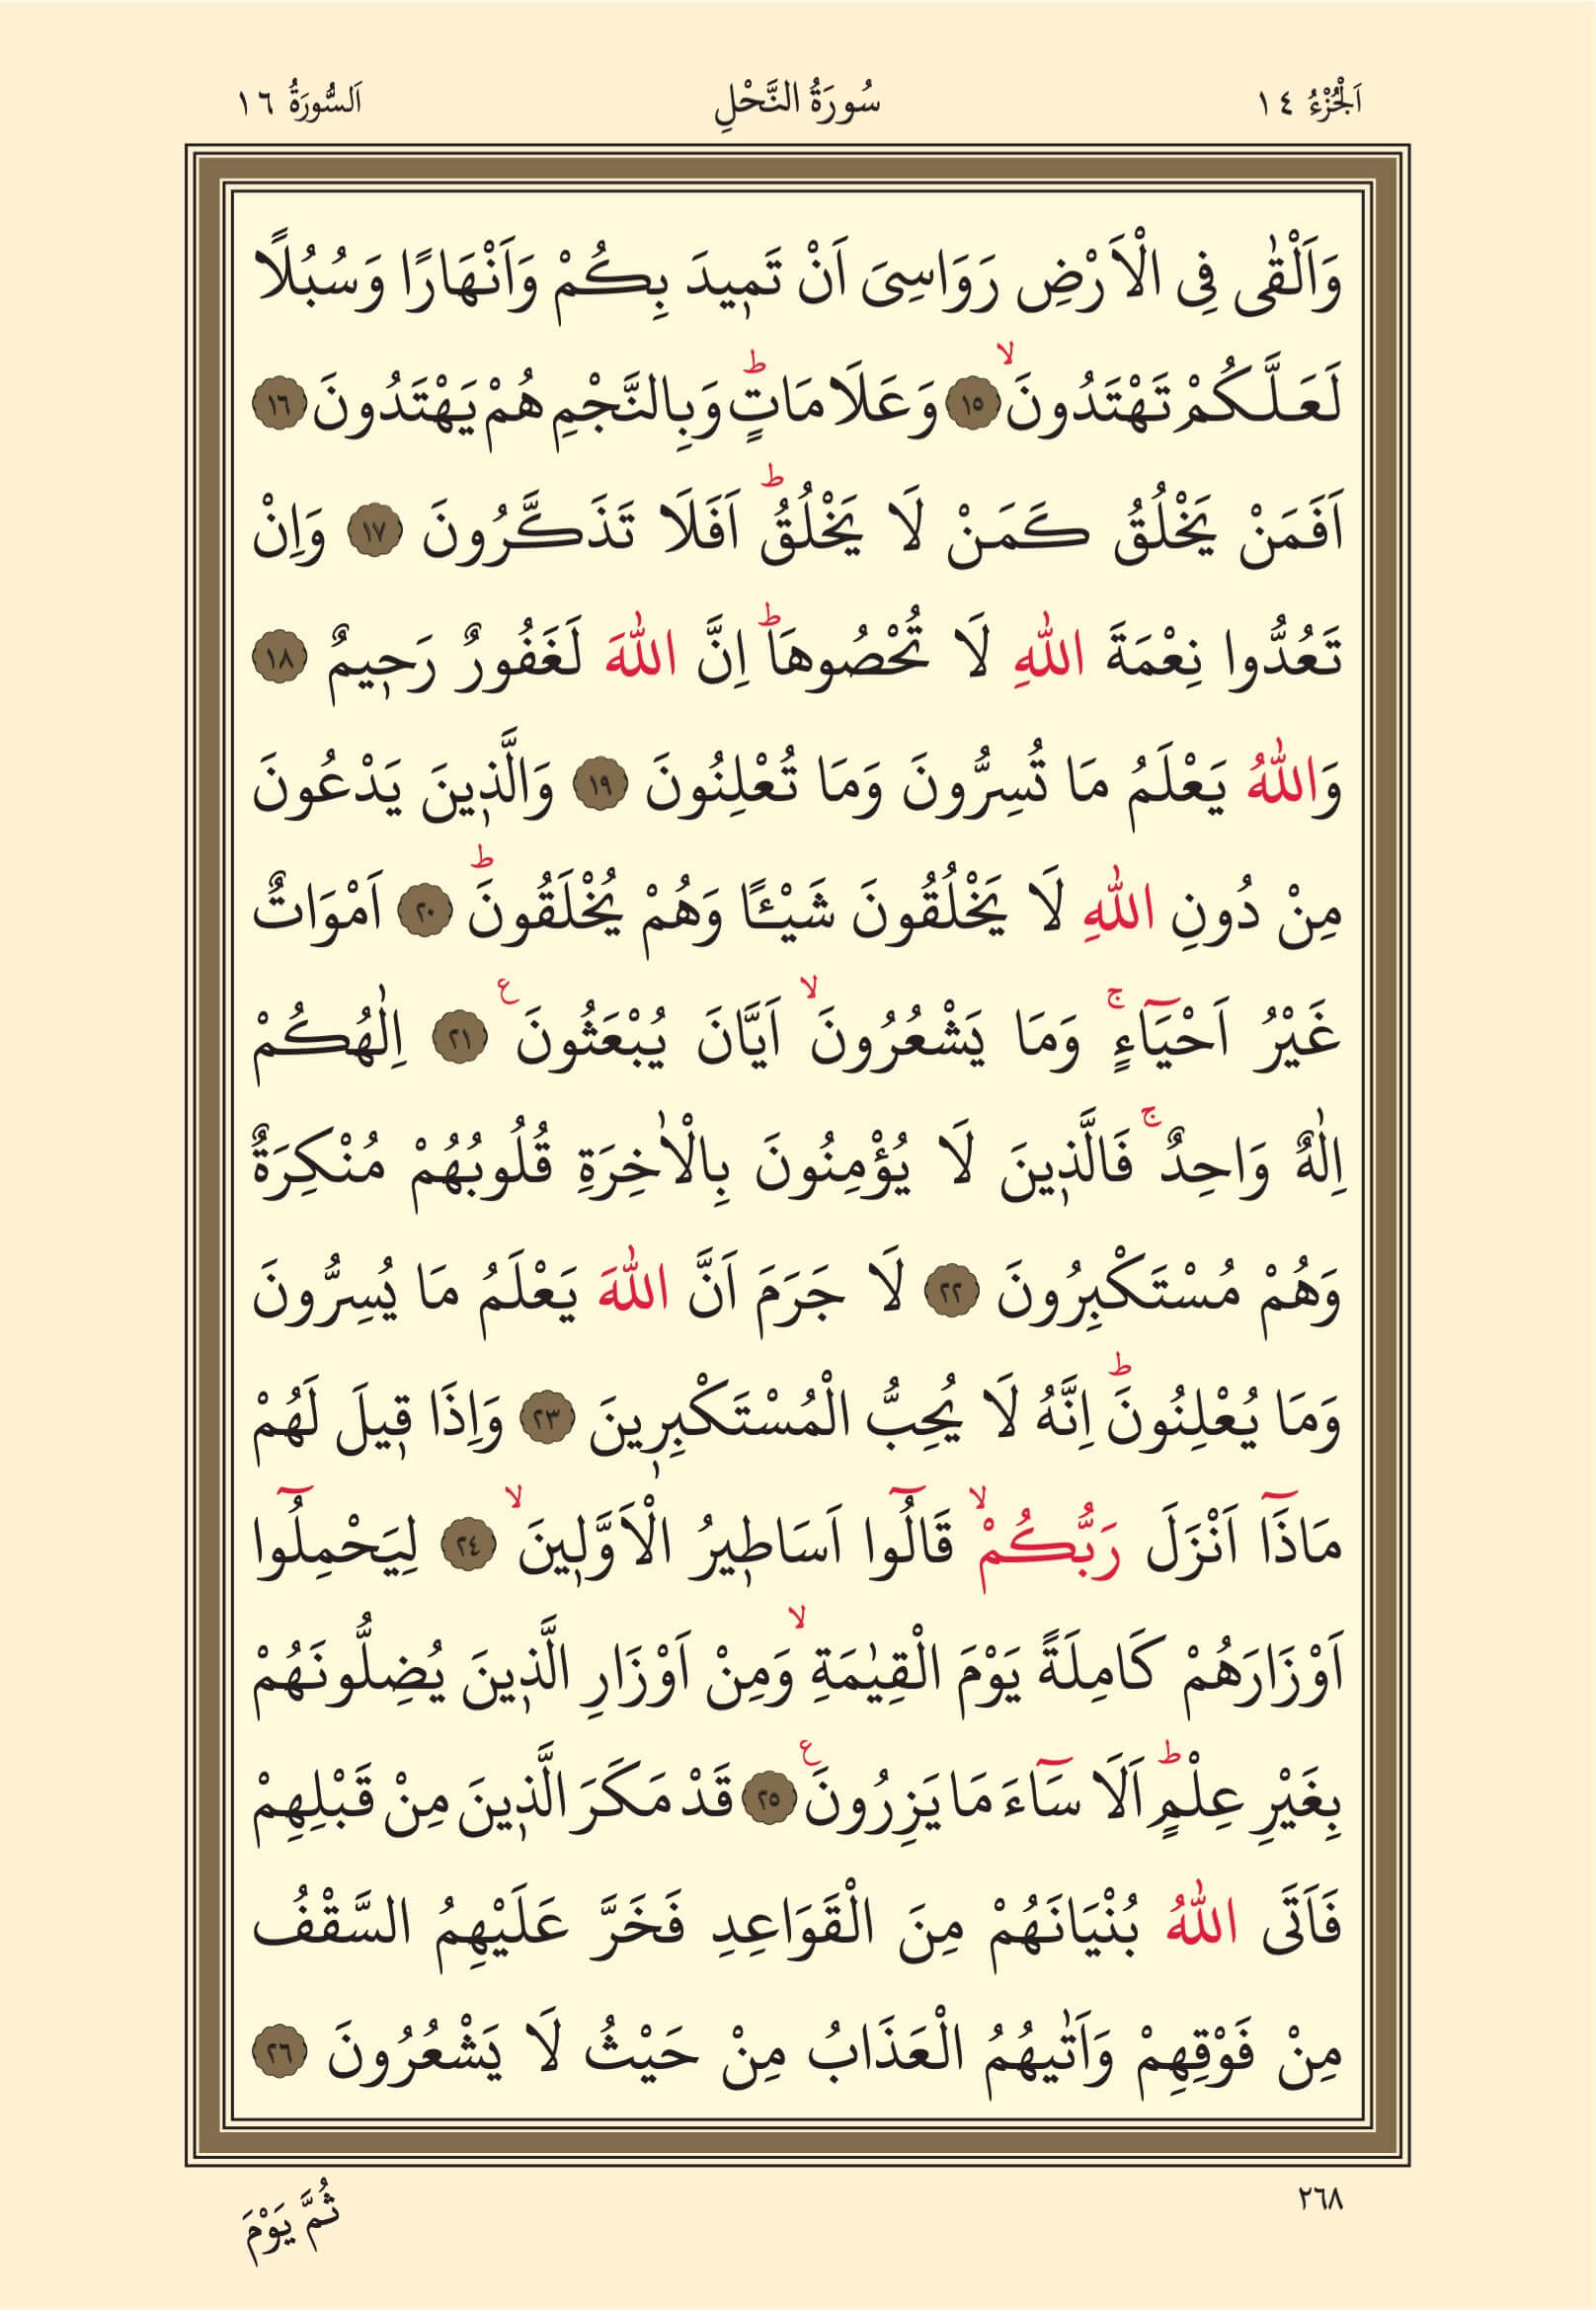 اَلْجُزْءُ ١٤ سُورَةُ النَّحْلِ اَلسُّورَةُ ١٦
وَاَلْقٰى فِى الْاَرْضِ رَوَاسِىَ اَنْ تَمٖيدَ بِكُمْ وَاَنْهَارًا وَسُبُلًا
لَعَلَّكُمْ تَهْتَدُونَۙ ١٥ وَعَلَامَاتٍؕ وَبِالنَّجْمِ هُمْ يَهْتَدُونَ ١٦
اَفَمَنْ يَخْلُقُ كَمَنْ لَا يَخْلُقُؕ اَفَلَا تَذَكَّرُونَ ١٧ وَاِنْ
تَعُدُّوا نِعْمَةَ اللّٰهِ لَا تُحْصُوهَاؕ اِنَّ اللّٰهَ لَغَفُورٌ رَحٖيمٌ ١٨
وَاللّٰهُ يَعْلَمُ مَا تُسِرُّونَ وَمَا تُعْلِنُونَ ١٩ وَالَّذٖينَ يَدْعُونَ
مِنْ دُونِ اللّٰهِ لَا يَخْلُقُونَ شَيْـًٔا وَهُمْ يُخْلَقُونَؕ ٢٠ اَمْوَاتٌ
غَيْرُ اَحْيَٓاءٍۚ وَمَا يَشْعُرُونَۙ اَيَّانَ يُبْعَثُونَ ع ٢١ اِلٰهُكُمْ
اِلٰهٌ وَاحِدٌۚ فَالَّذٖينَ لَا يُؤْمِنُونَ بِالْاٰخِرَةِ قُلُوبُهُمْ مُنْكِرَةٌ
وَهُمْ مُسْتَكْبِرُونَ ٢٢ لَا جَرَمَ اَنَّ اللّٰهَ يَعْلَمُ مَا يُسِرُّونَ
وَمَا يُعْلِنُونَؕ اِنَّهُ لَا يُحِبُّ الْمُسْتَكْبِرٖينَ ٢٣ وَاِذَا قٖيلَ لَهُمْ
مَاذَٓا اَنْزَلَ رَبُّكُمْۙ قَالُٓوا اَسَاطٖيرُ الْاَوَّلٖينَۙ ٢٤ لِيَحْمِلُٓوا
اَوْزَارَهُمْ كَامِلَةً يَوْمَ الْقِيٰمَةِۙ وَمِنْ اَوْزَارِ الَّذٖينَ يُضِلُّونَهُمْ
بِغَيْرِ عِلْمٍؕ اَلَا سَٓاءَ مَا يَزِرُونَ ع ٢٥ قَدْ مَكَرَ الَّذٖينَ مِنْ قَبْلِهِمْ
فَاَتَى اللّٰهُ بُنْيَانَهُمْ مِنَ الْقَوَاعِدِ فَخَرَّ عَلَيْهِمُ السَّقْفُ
مِنْ فَوْقِهِمْ وَاَتٰيهُمُ الْعَذَابُ مِنْ حَيْثُ لَا يَشْعُرُونَ ٢٦
٢٦٨
ثُمَّ يَوْمَ